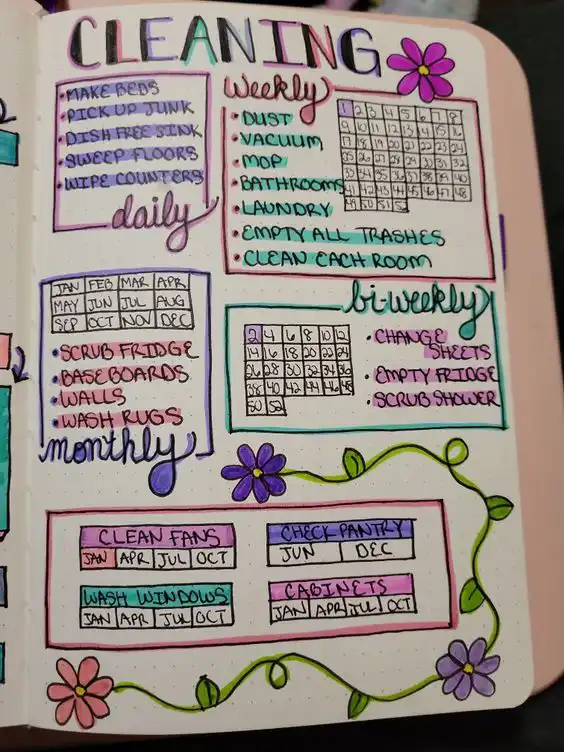 CLEANING
• MAKE BEDS
• PICK UP JUNK
• DISH FREE SINK
• SWEEP FLOORS
• WIPE COUNTERS
daily
Weekly
• DUST
• VACUUM
• MOP
• BATHROOMS
• LAUNDRY
• EMPTY ALL TRASHES
• CLEAN EACH ROOM
1 2 3 4 5 6 7 8
9 10 11 12 13 14 15 16
17 18 19 20 21 22 23 24
25 26 27 28 29 30 31 32
33 34 35 36 37 38 39 40
41 42 43 44 45 46 47 48
49 50 51 52
JAN FEB MAR APR
MAY JUN JUL AUG
SEP OCT NOV DEC
• SCRUB FRIDGE
• BASEBOARDS
• WALLS
• WASH RUGS
monthly
bi-weekly
2 4 6 8 10 12
14 16 18 20 22 24
26 28 30 32 34 36
38 40 42 44 46 48
50 52
• CHANGE
SHEETS
• EMPTY FRIDGE
• SCRUB SHOWER
CLEAN FANS
JAN APR JUL OCT
CHECK PANTRY
JUN DEC
WASH WINDOWS
JAN APR JUL OCT
CABINETS
JAN APR JUL OCT